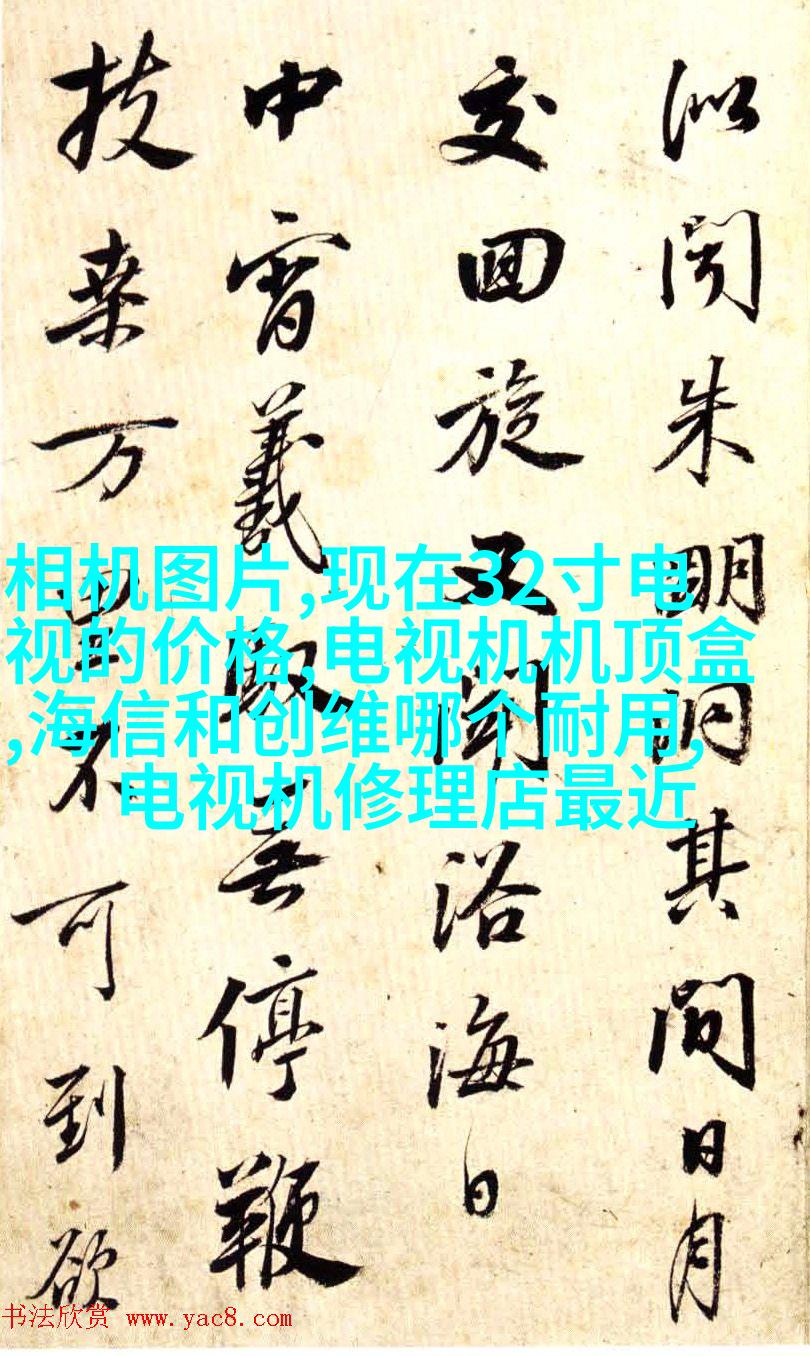 似聞朱明洞其間日月
交回旋又聞浴海日
中宵羲馭無停鞭
扶桒万里不可到欲
相机图片,现在32寸电
视的价格,电视机机顶盒
,海信和创维哪个耐用,
电视机修理店最近
书法欣赏 www.yac8.com